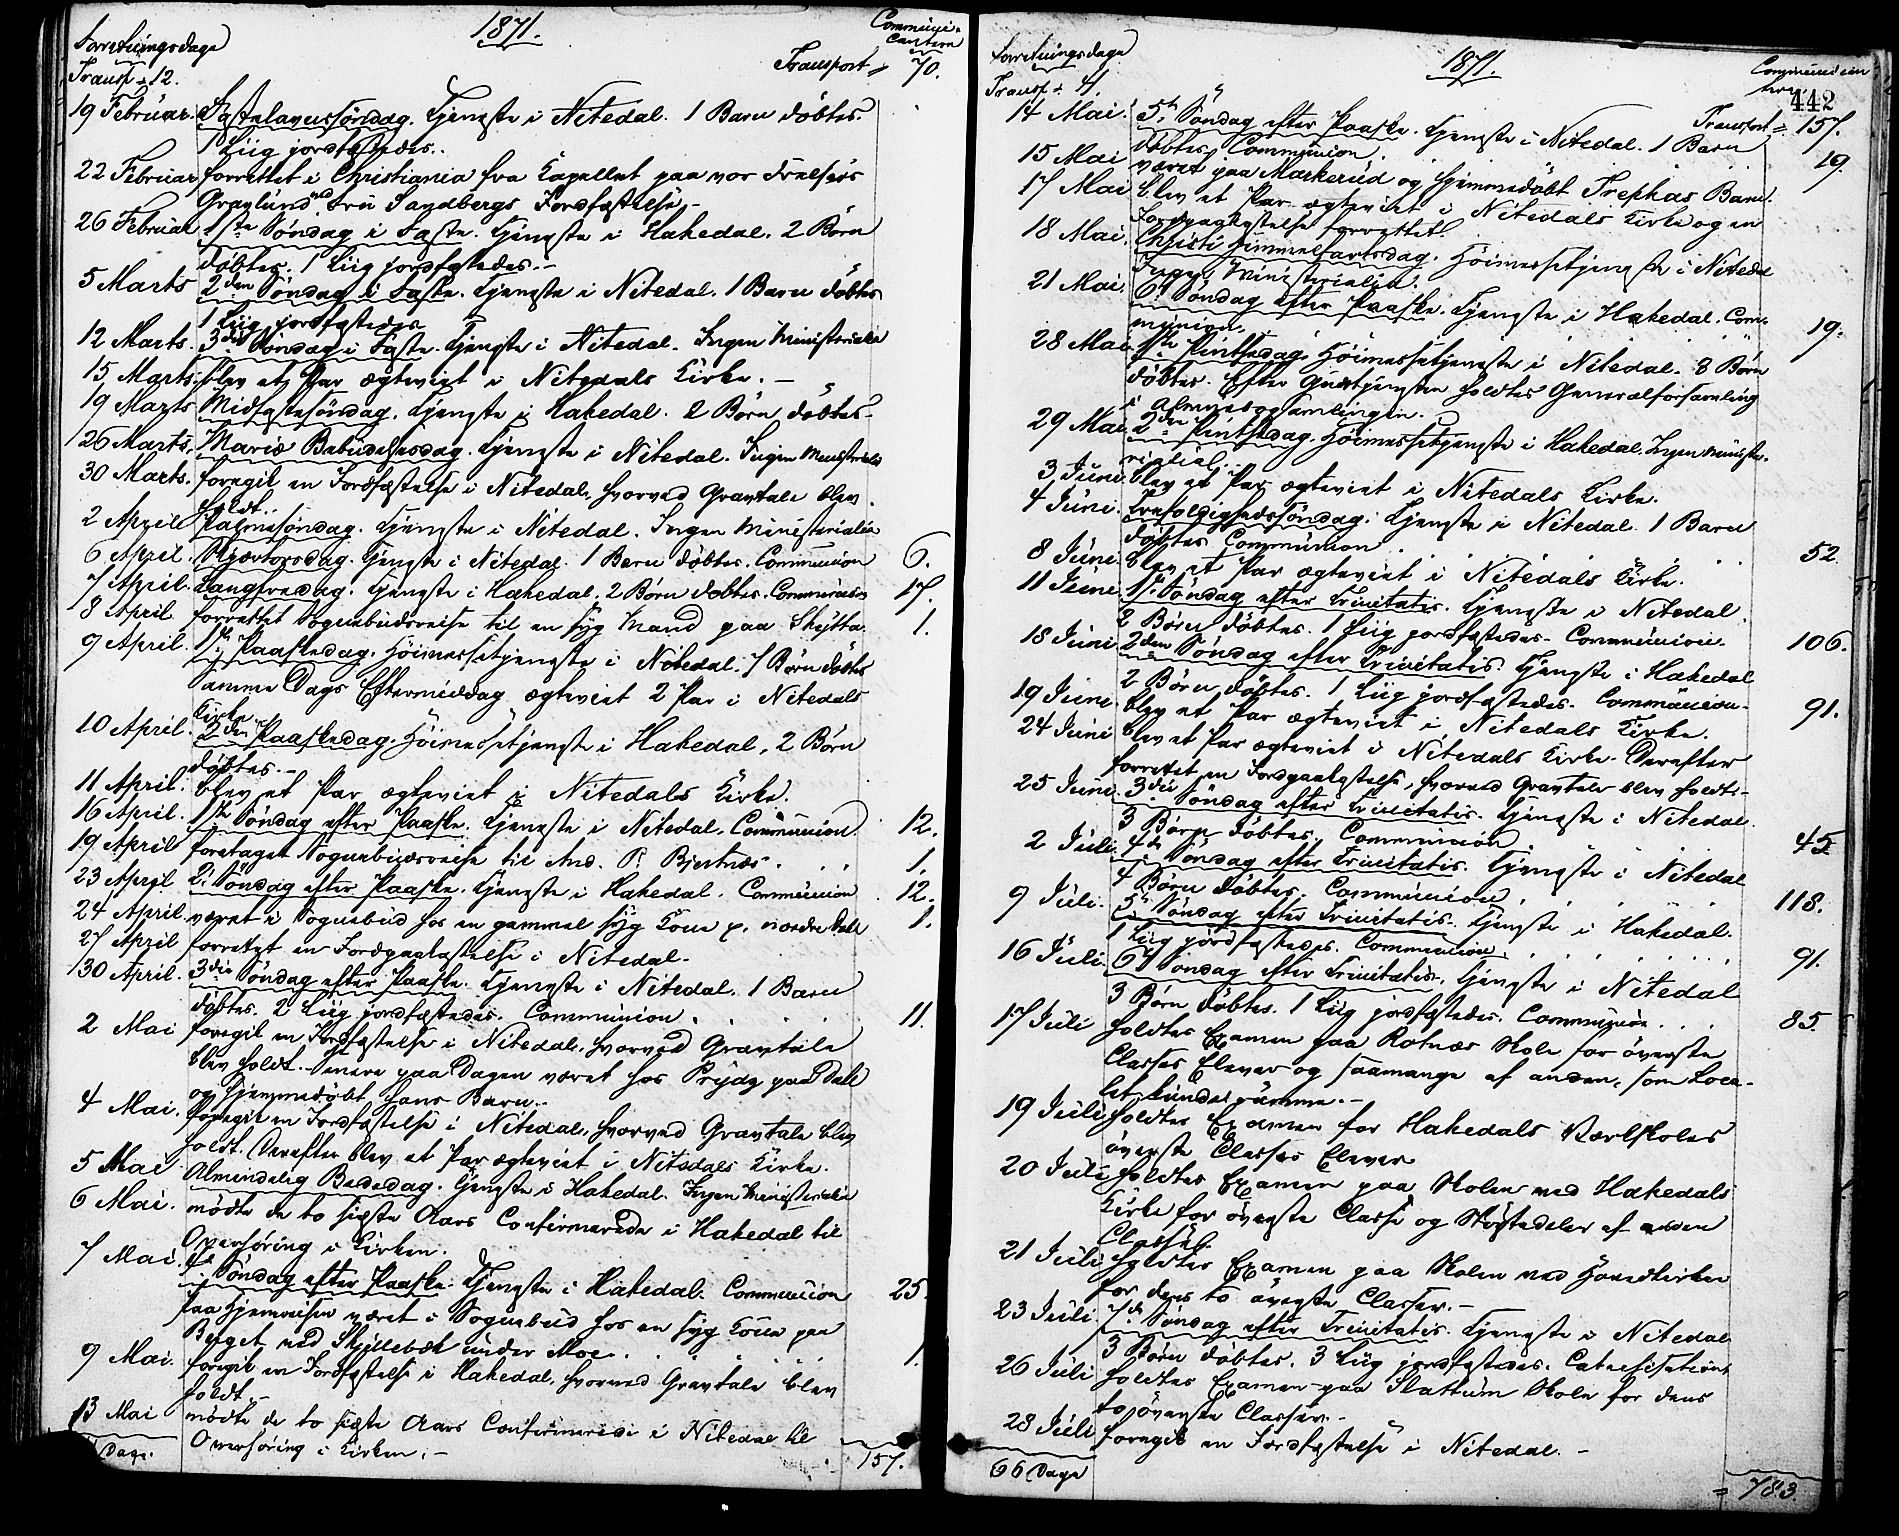 Forretningsdage 1871. Communicantern
Transp. = 12. Transport = 70.
19 Februar. Fastelavnssöndag. Tjeneste i Nitedal. 1 Barn döbtes.
1 Liig jordfæstedes.
22 Februar forrettet i Christiania fra Kapellet paa vor Frelsers
Gravlund ved Fru Sandbergs Jordfæstelse. –
26 Februar 1ste Söndag i Faste. Tjeneste i Hakedal. 2 Börn
döbtes. 1 Liig jordfæstedes. –
5 Marts 2den Söndag i Faste. Tjeneste i Nitedal. 1 Barn döbtes
1 Liig jordfæstedes
12 Marts. 3die Söndag i Faste. Tjeneste i Nitedal. Ingen Ministerialia
15 Marts. blev et Par ægteviet i Nitedals Kirke. –
19 Marts Midfastesöndag. Tjeneste i Hakedal. 2 Börn döbtes. –
26 Marts. Mariæ Bebudelsesdag. Tjeneste i Nitedal. Ingen Ministerialia
30 Marts. foregik en Jordfæstelse i Nitedal, hvorved Gravtale blev
holdt.
2 April Palmesöndag. Tjeneste i Nitedal. Ingen Ministerialia
6 April. Skjærtorsdag. Tjeneste i Nitedal. 1 Barn döbtes. Communion 6.
7 April. Langfredag. Tjeneste i Hakedal. 2 Börn döbtes. Communion 17.
8 April forrettet Sognebudsreise til en syg Mand paa Skytta. 1.
9 April. 1ste Paaskedag. Höimessetjeneste i Nitedal. 7 Börn döbtes
Samme Dags Eftermiddag ægteviet 2 Par i Nitedals
Kirke.
10 April. 2den Paaskedag. Höimessetjeneste i Hakedal, 2 Börn
döbtes. –
11 April. blev et Par ægteviet i Nitedals Kirke.
16 April. 1ste Söndag efter Paaske. Tjeneste i Nitedal. Communion 12.
19 April foretaget Sognebudsreise til And. P. Bjertnæs. 1.
23 April 2. Söndag efter Paaske. Tjeneste i Hakedal. Communion 12.
24 April. været i Sognebud hos en gammel syg Kone p. nordre Dale 1.
27 April forrettet en Jordpaakastelse i Nitedal.
30 April. 3die Söndag efter Paaske. Tjeneste i Nitedal. 1 Barn
döbtes. 2 Liig jordfæstedes. Communion. 11.
2 Mai foregik en Jordfæstelse i Nitedal, hvorved Gravtale
blev holdt. Senere paa Dagen været hos Prydz paa Dale
og hjemmedöbt hans Barn. –
4 Mai. foregik en Jordfæstelse i Nitedal, hvorved Gravtale blev
holdt. Derefter blev et Par ægteviet i Nitedals Kirke.
5 Mai Almindelig Bededag. Tjeneste i Hakedal. Ingen Ministerialia
6 Mai. mödte de to sidste Aars Confirmerede i Hakedal til
Overhöring i Kirken.
7 Mai. 4de Söndag efter Paaske. Tjeneste i Hakedal. Communion 25.
Paa Hjemreisen været i Sognebud hos en syg Kone paa
Berget ved Skyllebæk under Moe. 1.
9 Mai. foregik en Jordfæstelse i Hakedal, hvorved Gravtale blev
holdt. –
13 Mai mödte de to sidste Aars Confirmerede i Nitedal til
Overhöring i Kirken. –
Dage. 157.
Forretningsdage 1871. Communicantern
442
Transp. = 41. Transport = 157.
14 Mai. 5te Söndag efter Paaske. Tjeneste i Nitedal. 1 Barn
döbtes. Communion 19.
15 Mai været paa Markerud og hjemmedöbt Trephas Barn.
17 Mai blev et Par ægteviet i Nitedals Kirke og en
Jordpaakastelse forrettet.
18 Mai. Christi Himmelfartsdag. Höimessetjeneste i Nitedal
Ingen Ministerialia.
21 Mai. 6te Söndag efter Paaske. Tjeneste i Hakedal. Com-
munion. 19.
28 Mai 1ste Pintsedag. Höimessetjeneste i Nitedal. 3 Börn
döbtes. Efter Gudstjenesten holdtes Generalforsamling
i Almuebogsamlingen.
29 Mai 2den Pintsedag. Höimessetjeneste i Hakedal. Ingen Ministe-
rialia.
3 Juni. blev et Par ægteviet i Nitedals Kirke.
4 Juni. Trefoldighedssöndag. Tjeneste i Nitedal. 1 Barn
döbtes. Communion 52.
8 Juni. blev et Par ægteviet i Nitedals Kirke.
11 Juni. 1ste Söndag efter Trinitatis. Tjeneste i Nitedal.
2 Börn döbtes. 1 Liig jordfæstedes. Communion. 106.
18 Juni. 2den Söndag efter Trinitatis. Tjeneste i Hakedal
2 Börn döbtes. 1 Liig jordfæstedes. Communion. 91.
19 Juni. blev et Par ægteviet i Nitedals Kirke.
24 Juni blev et Par ægteviet i Nitedals Kirke. Derefter
forrettet en Jordpaakastelse, hvorved Gravtale blev holdt. –
25 Juni. 3die Söndag efter Trinitatis. Tjeneste i Nitedal.
3 Börn döbtes. Communion. 45.
2 Juli. 4de Söndag efter Trinitatis. Tjeneste i Nitedal
4 Börn döbtes. Communion. 118.
9 Juli. 5te Söndag efter Trinitatis. Tjeneste i Hakedal.
1 Liig jordfæstedes. Communion. 91.
16 Juli. 6te Söndag efter Trinitatis. Tjeneste i Nitedal
3 Börn döbtes. 1 Liig jordfæstedes. Communion. 85.
17 Juli holdtes Examen paa Rotnæs Skole for överste
Classes Elever og saamange af anden, som Loca-
let kunde rumme. –
19 Juli holdtes Examen for Hakedals Værkskoles
överste Classes Elever
20 Juli holdtes Examen paa Skolen ved Hakedals
Kirke for överste Classe og Störstedelen af anden
Classe.
21 Juli holdtes Examen paa Skolen ved Hovedkirken
for dens to överste Classer. –
23 Juli. 7de Söndag efter Trinitatis. Tjeneste i Nitedal
3 Börn döbtes. 3 Liig jordfæstedes. Catechisation
26 Juli holdtes Examen paa Slattum Skole for dens
to överste Classer. –
28 Juli foregik en Jordfæstelse i Nitedal. –
66 Dage = 783.